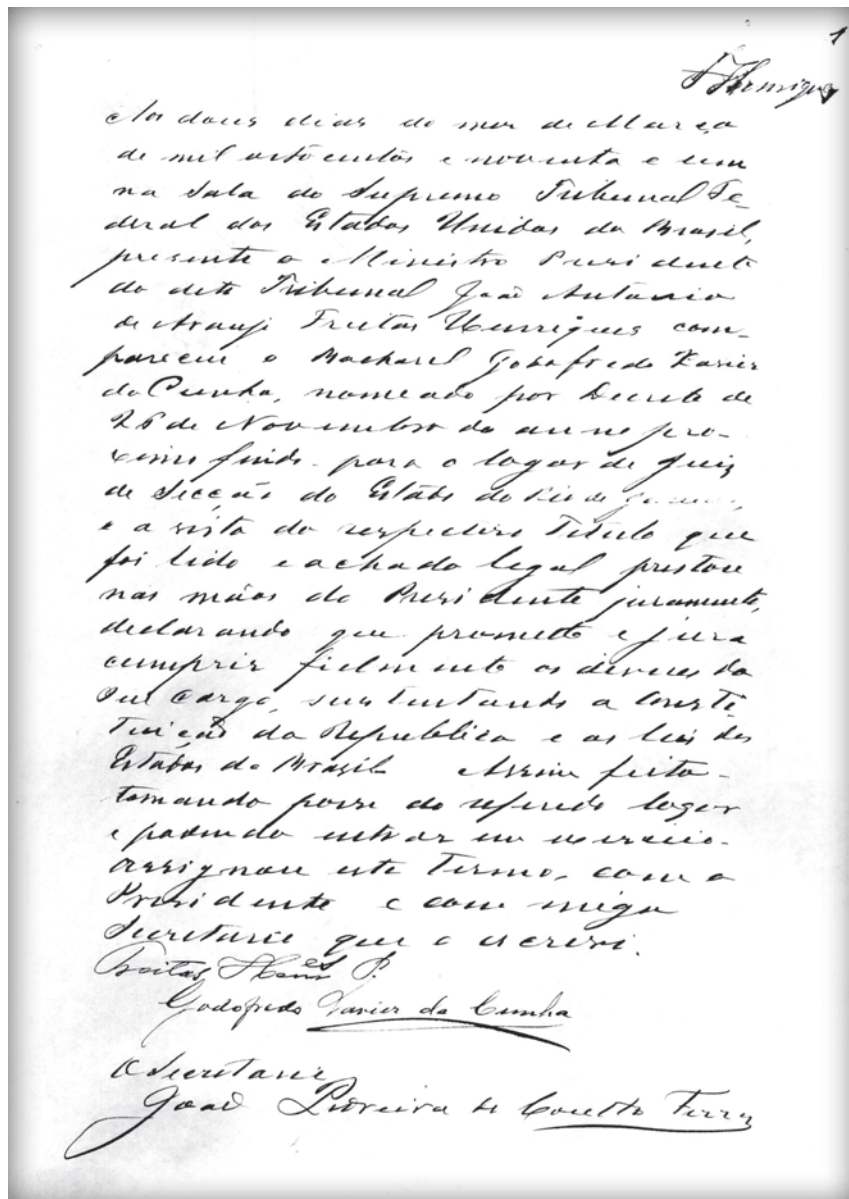 1
F Henriques
Aos dous dias do mez de Março
de mil oitocentos e noventa e um
na Sala do Supremo Tribunal Fe-
deral dos Estados Unidos do Brasil,
presente o Ministro Presidente
do dito Tribunal João Antonio
de Araujo Freitas Henriques com-
pareceu o Bacharel Godofredo Xavier
da Cunha, nomeado por Decreto de
26 de Novembro do anno pro-
ximo findo para o logar de Juiz
de Secção do Estado do Rio de
e a vista do respectivo Titulo que
foi lido e achado legal prestou
nas mãos do Presidente juramento,
declarando que promette e jura
cumprir fielmente os deveres do
seu cargo, sustentando a Consti-
tuição da Republica e as leis dos
Estados do Brazil Assim feito
tomando posse do referido logar
e podendo entrar em exercicio
assignou este Termo, com o
Presidente e commigo
Secretario que o escrevi.
Freitas Henes P.
Godofredo Xavier da Cunha
O Secretario
João Pedreira do Coutto Ferraz